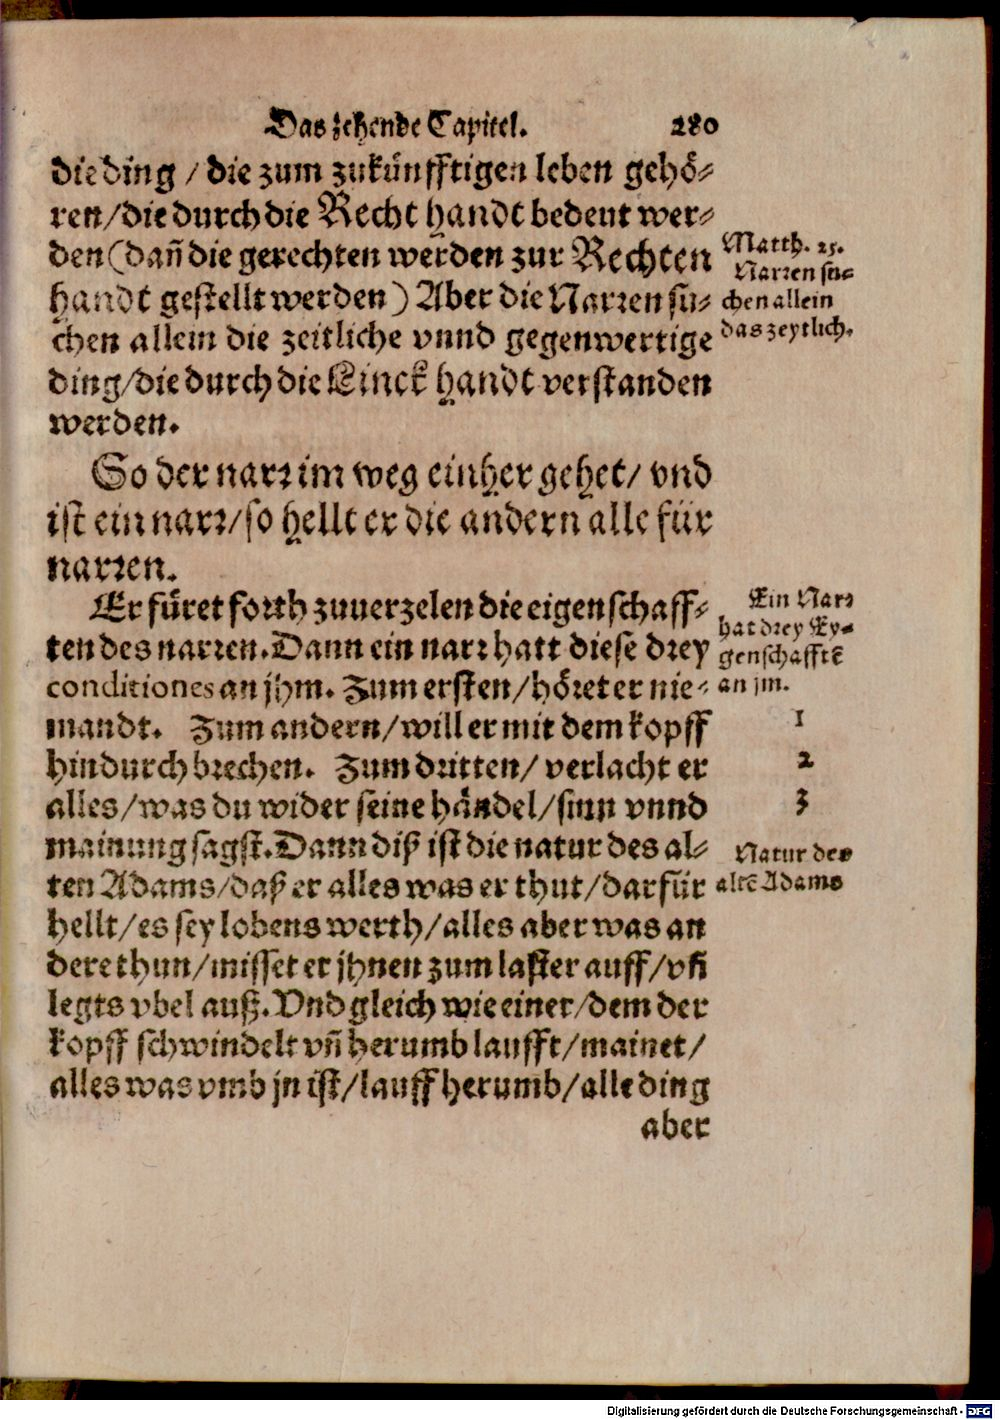 Das zehende Capitel. 280
die ding / die zum zukünfftigen leben gehö⸗
ren/die durch die Recht handt bedeut wer⸗
den (dañ die gerechten werden zur Rechten
handt gestellt werden) Aber die Narren su⸗
chen allein die zeitliche vnnd gegenwertige
ding/die durch die Linck handt verstanden
werden.
Matth. 25.
Narren su⸗
chen allein
das zeytlich.
So der narr im weg einher gehet/ vnd
ist ein narr/so hellt er die andern alle für
narren.
Er füret forth zuuerzelen die eigenschaff⸗
ten des narren. Dann ein narr hatt diese drey
conditiones an jhm. Zum ersten/höret er nie⸗
mandt. Zum andern/will er mit dem kopff
hindurch brechen. Zum dritten/ verlacht er
alles/was du wider seine händel/sinn vnnd
mainung sagst. Dann diß ist die natur des al⸗
ten Adams/daß er alles was er thut/darfür
hellt/es sey lobens werth/alles aber was an
dere thun/misset er jhnen zum laster auff/vñ
legts vbel auß. Vnd gleich wie einer/dem der
kopff schwindelt vñ herumb laufft/mainet/
alles was vmb jn ist/lauff herumb/alle ding
aber
Ein Narr
hat drey Ey⸗
genschafftē
an jm.
1
2
3
Natur des
altē Adams
Digitalisierung gefördert durch die Deutsche Forschungsgemeinschaft - DFG